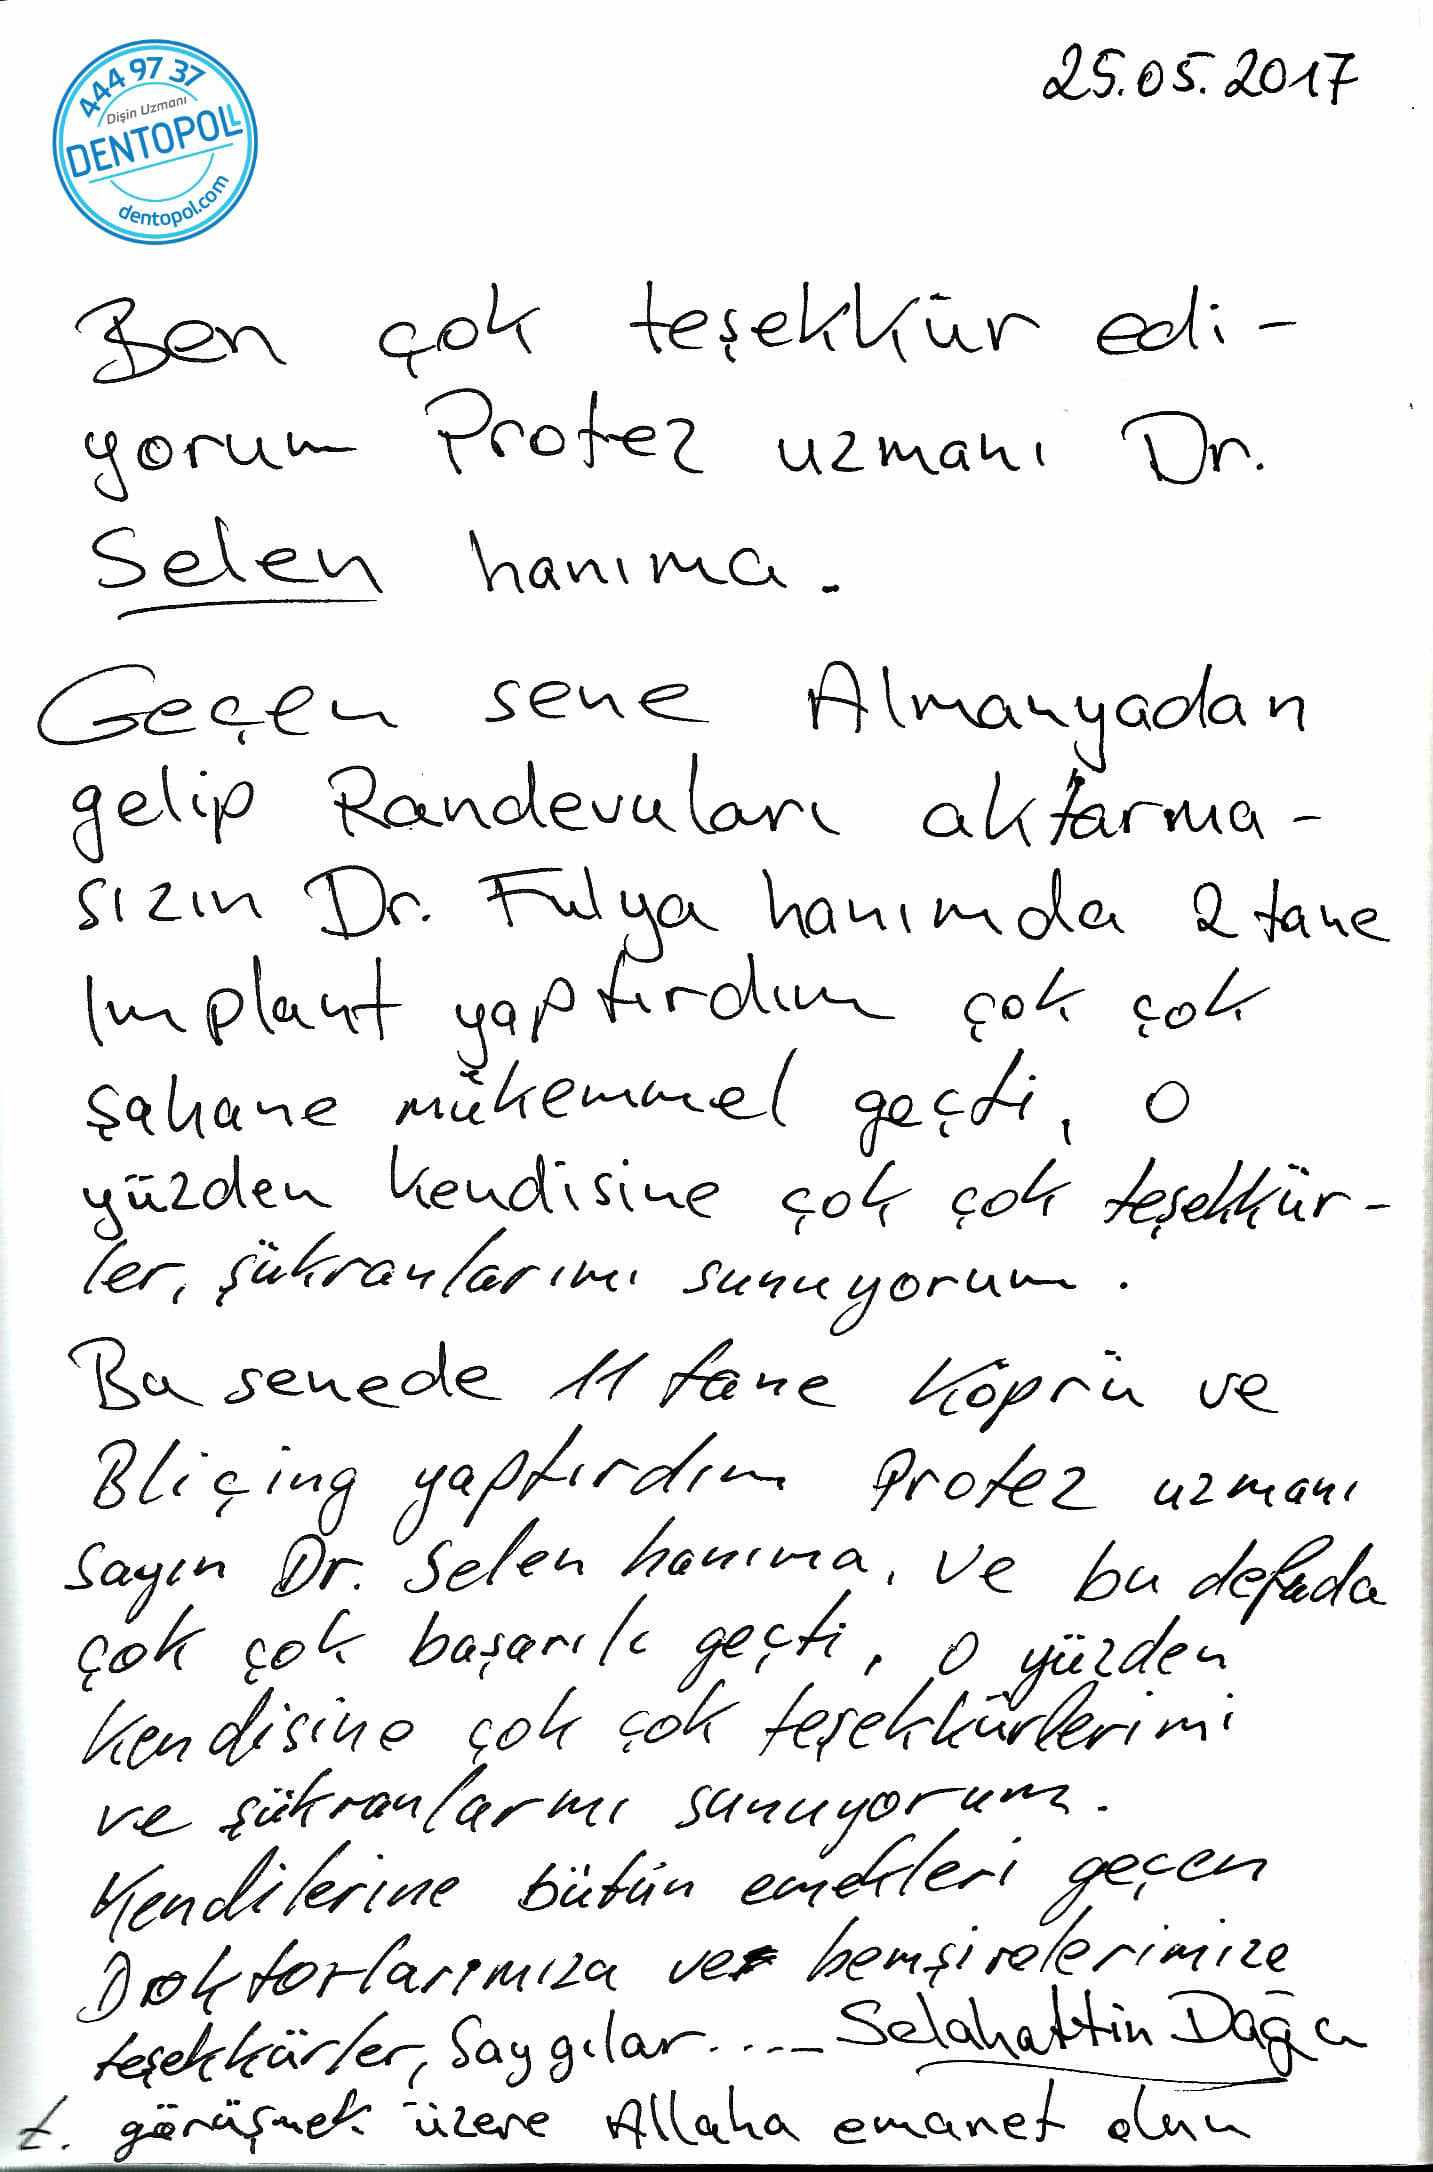 444 97 37
Dişin Uzmanı
DENTOPOL
dentopol.com
25.05.2017
Ben çok teşekkür edi-
yorum Protez uzmanı Dr.
Selen hanıma.
Geçen sene Almanyadan
gelip Randevuları aktarma-
sızın Dr. Fulya hanımda 2 tane
Implant yaptırdım çok çok
şahane mükemmel geçti, o
yüzden kendisine çok çok teşekkür-
ler, şükranlarımı sunuyorum.
Bu senede 11 tane Köprü ve
Bliçing yaptırdım Protez uzmanı
Sayın Dr. Selen hanıma, ve bu defada
çok çok başarılı geçti, o yüzden
Kendisine çok çok teşekkürlerimi
ve şükranlarmı sunuyorum.
Kendilerine bütün emekleri geçen
Doktorlarımıza ve hemşirelerimize
teşekkürler, Saygılar....- Selahattin
t. görüşmek üzere Allaha emanet olun